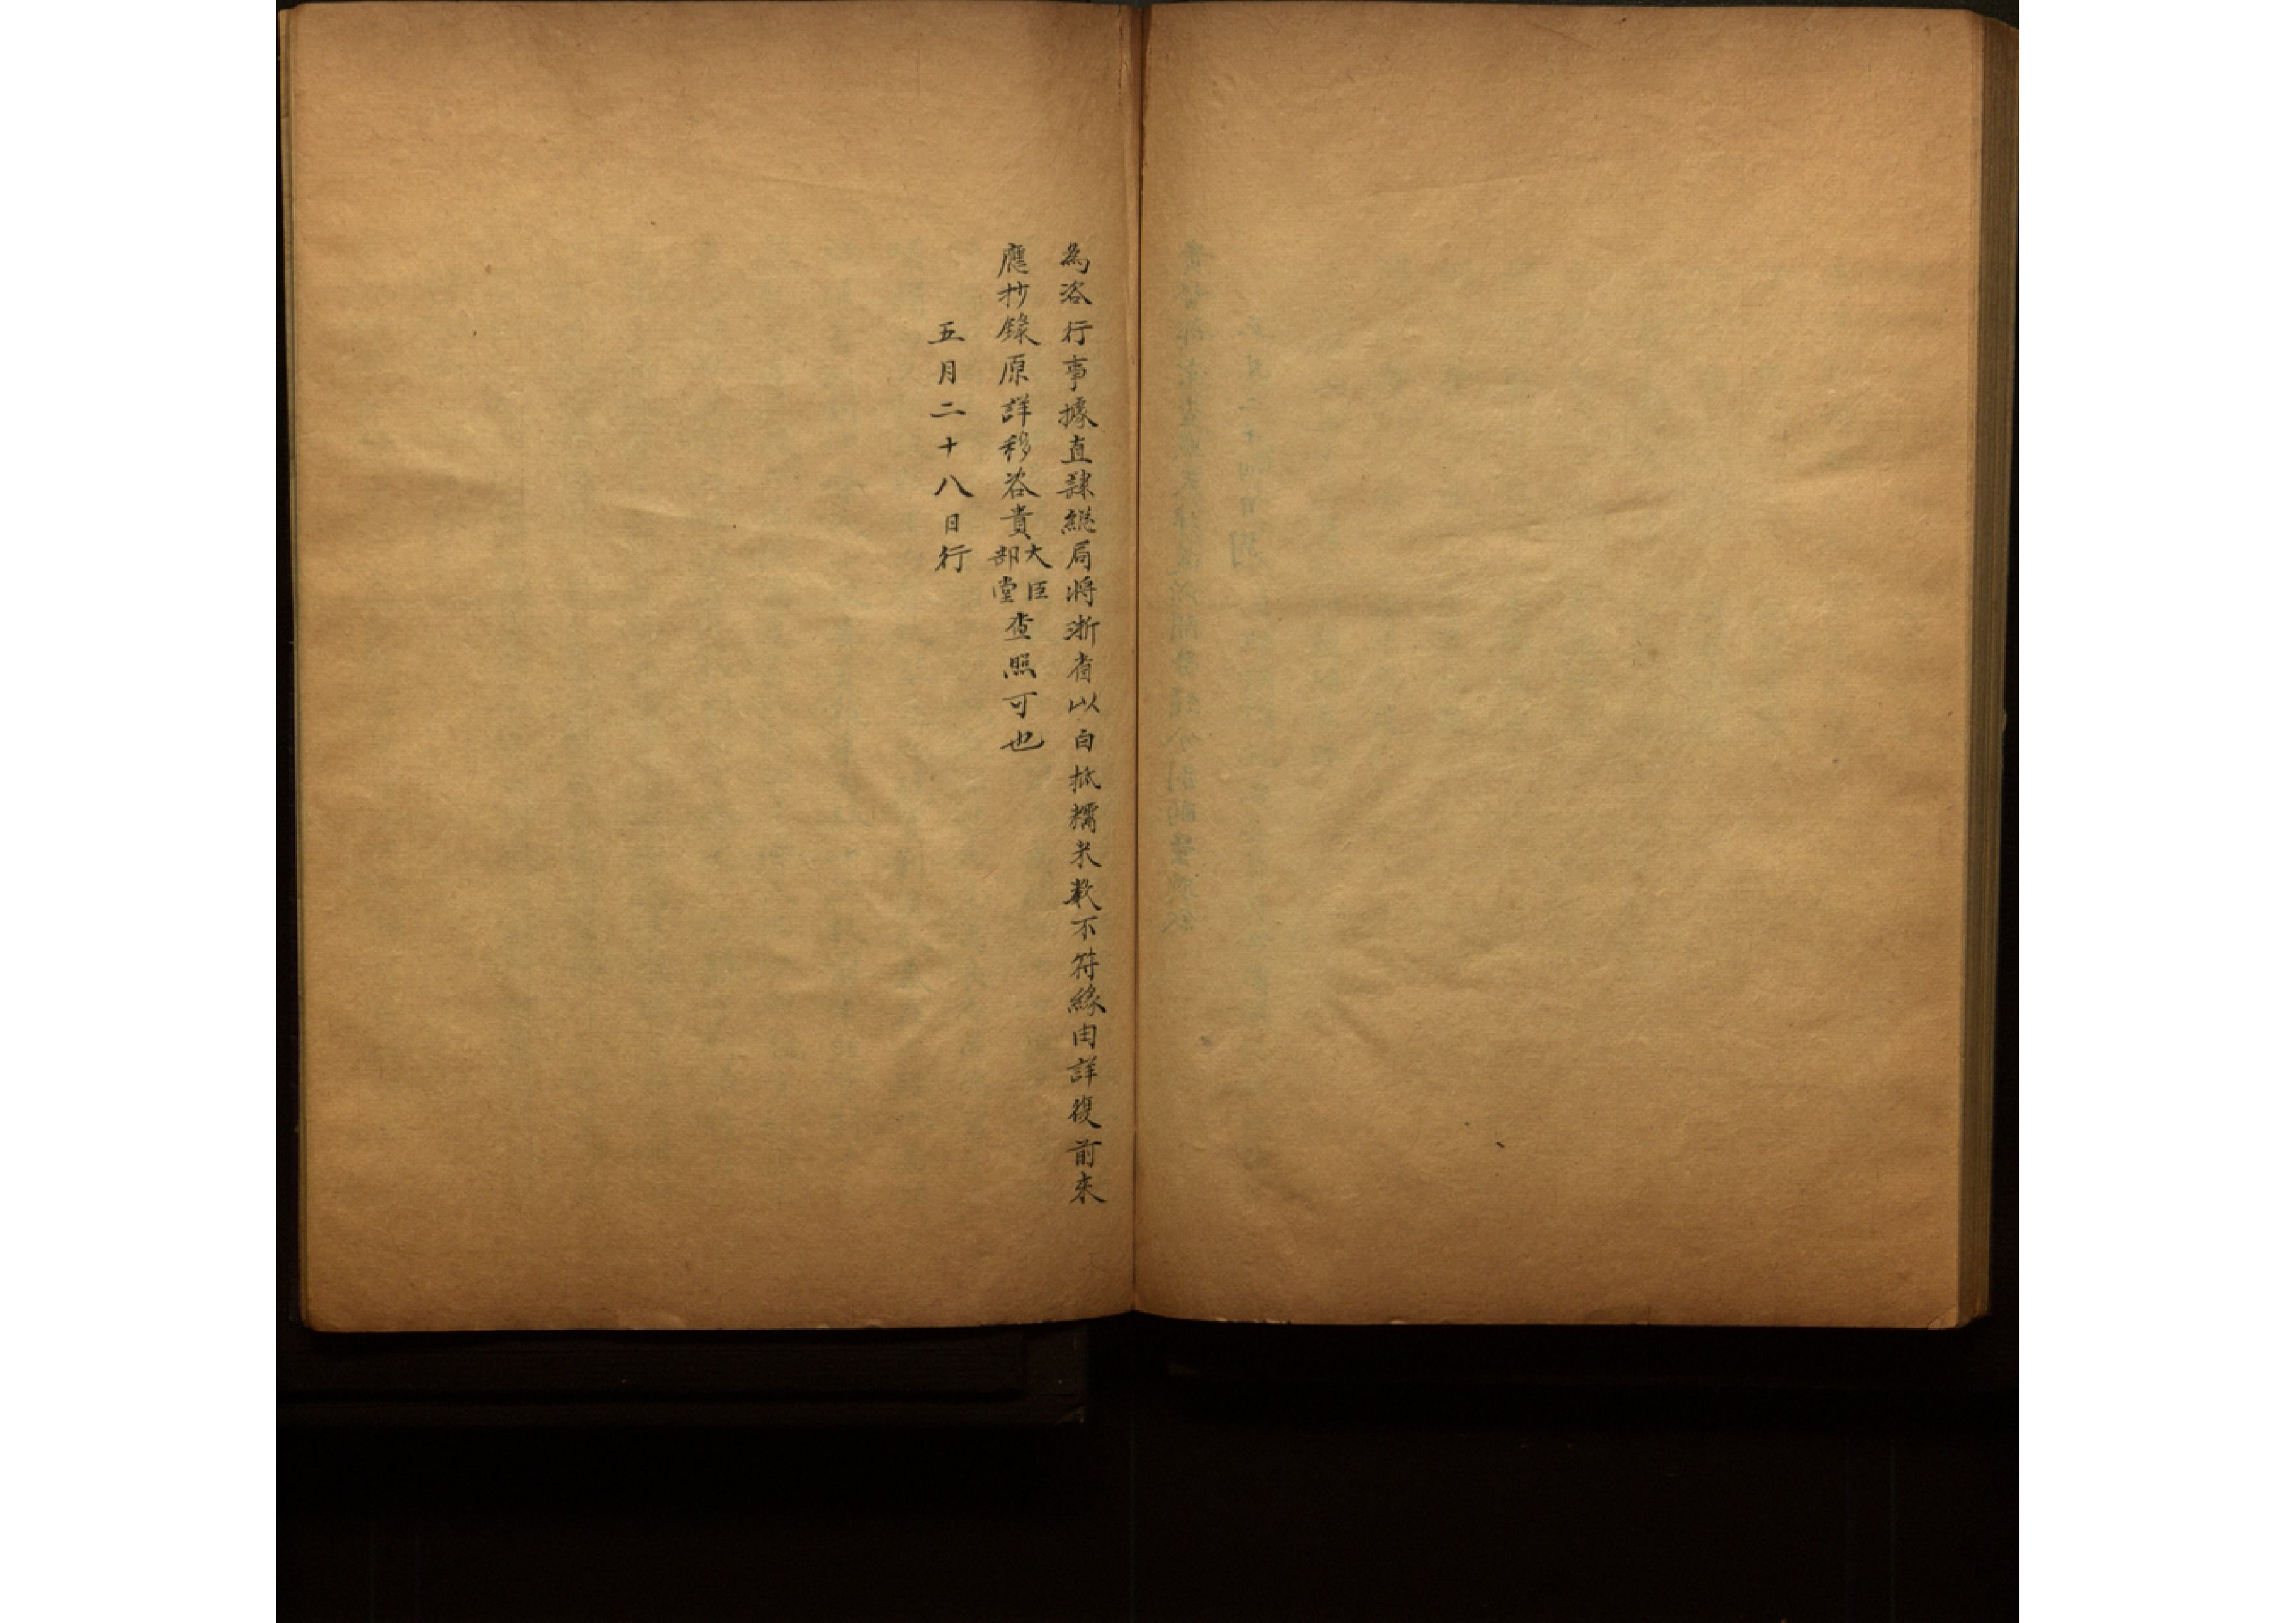 為咨行事據直隸總局將浙省以白抵糯米數不符緣由詳復前來
應抄錄原詳移咨貴大臣部堂查照可也
五月二十八日行